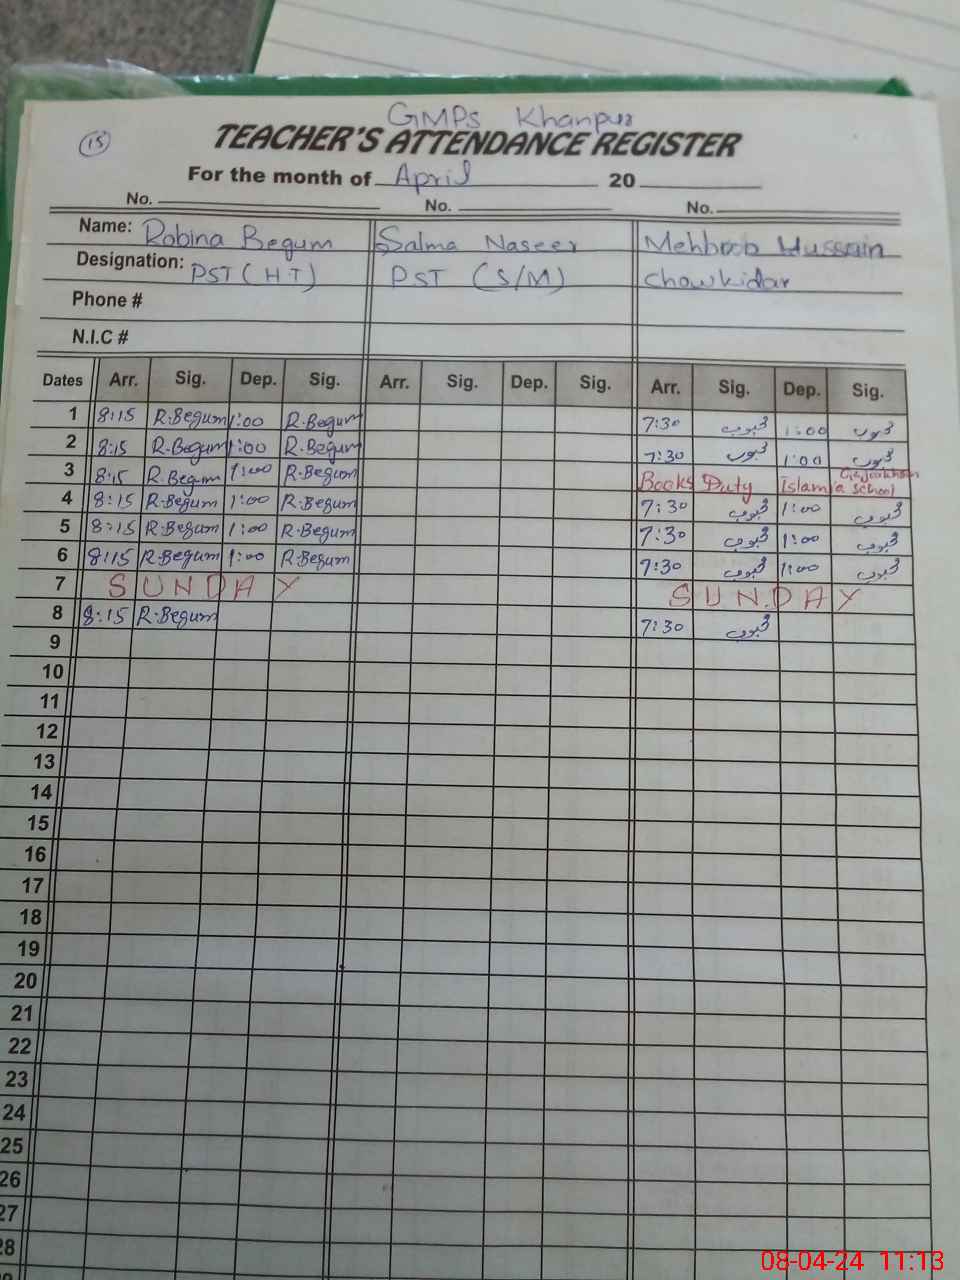 GMPs Khanpur
15
TEACHER'S ATTENDANCE REGISTER
For the month of April 20
No. No. No.
Name: Robina Begum Salma Naseer Mehboob Hussain
Designation: PST (HT) PST (S/M) Chowkidar
Phone #
N.I.C #
Dates Arr. Sig. Dep. Sig. Arr. Sig. Dep. Sig. Arr. Sig. Dep. Sig.
1 8:15 R.Begum 1:00 R.Begum 7:30 محبوب 1:00 محبوب
2 8:15 R.Begum 1:00 R.Begum 7:30 محبوب 1:00 محبوب
3 8:15 R.Begum 1:00 R.Begum Books Duty Islamia School
4 8:15 R.Begum 1:00 R.Begum 7:30 محبوب 1:00 محبوب
5 8:15 R.Begum 1:00 R.Begum 7:30 محبوب 1:00 محبوب
6 8:15 R.Begum 1:00 R.Begum 7:30 محبوب 1:00 محبوب
7 SUNDAY SUNDAY
8 8:15 R.Begum 7:30 محبوب
9
10
11
12
13
14
15
16
17
18
19
20
21
22
23
24
25
26
27
28
08-04-24 11:13